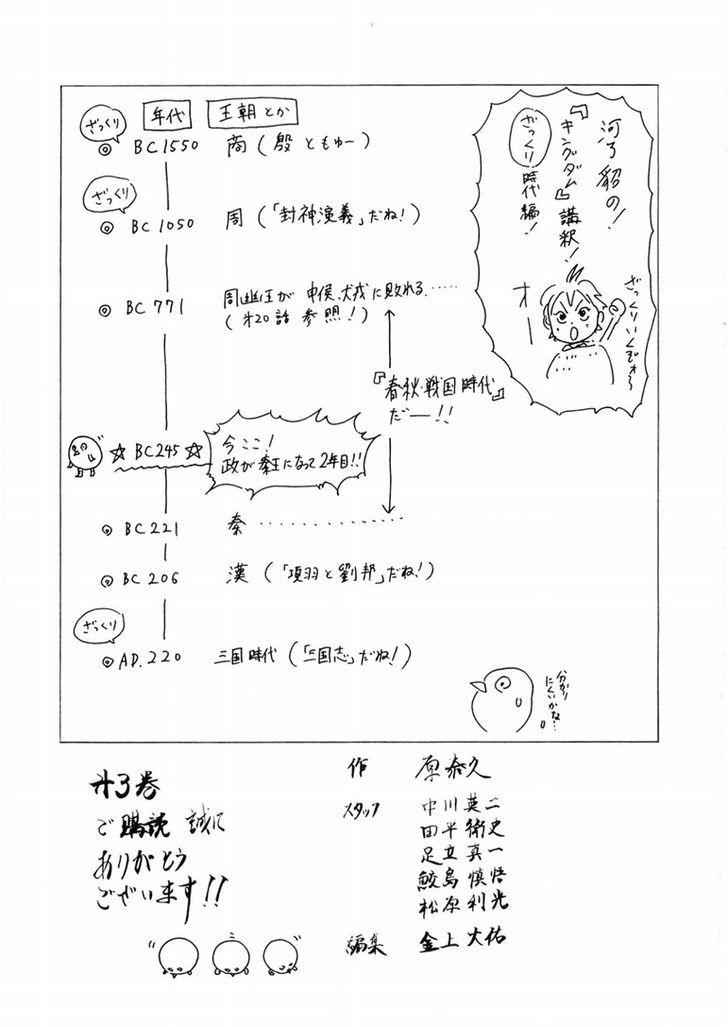 河了貂の!
『キングダム』講釈!
ざっくり時代編!
ざっくりいくぞォ〜
オー
年代 王朝とか
ざっくり
◎ BC1550 商(殷ともゆー)
ざっくり
◎ BC1050 周(「封神演義」だね!)
◎ BC771 周幽王が申侯、犬戎に敗れる……
(才20話 参照!)
『春秋・戦国時代』
だー!!
☆BC245☆ 今ここ!
政が秦王になって2年目!!
◎ BC221 秦
◎ BC206 漢(「項羽と劉邦」だね!)
ざっくり
◎ AD.220 三国時代(「三国志」だね!)
分かり
にくいかな…
才3巻
ご購読 誠に
ありがとう
ございます!!
作 原泰久
スタッフ 中川英二
田平衛史
足立真一
鮫島慎悟
松原利光
編集 金上大佑